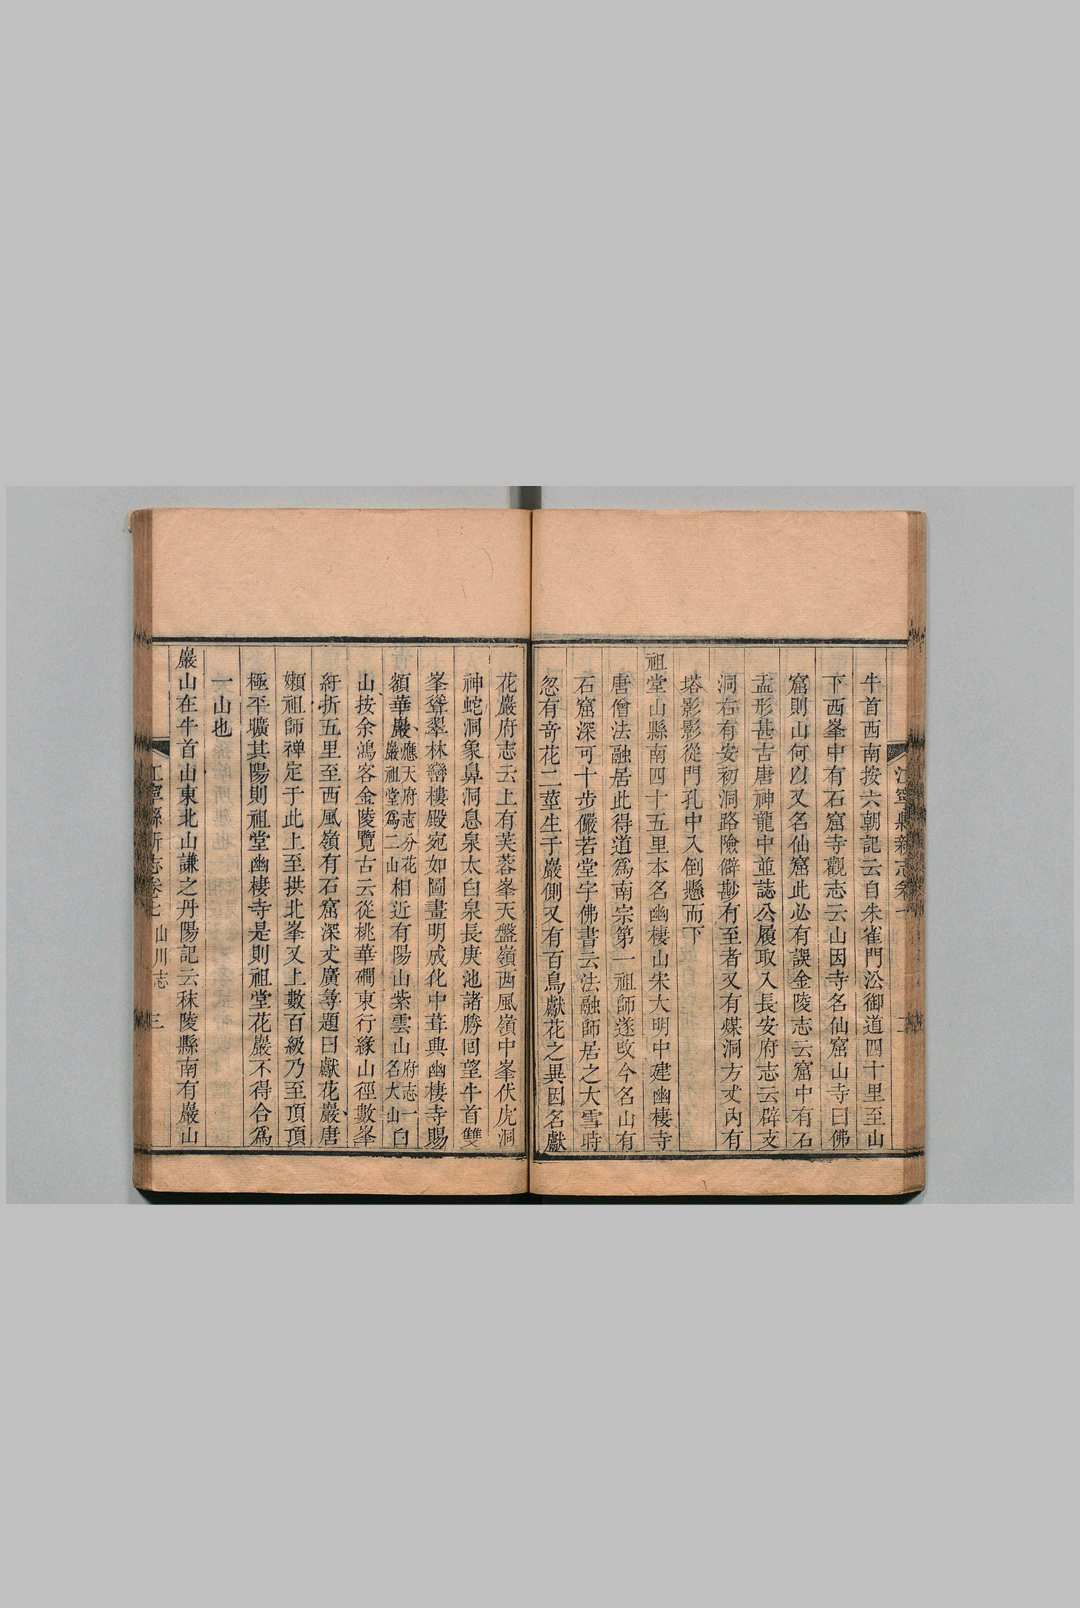 牛首西南按六朝記云自朱雀門沿御道四十里至山
下西峯中有石窟寺觀志云山因寺名仙窟山寺曰佛
窟則山何以又名仙窟此必有誤金陵志云窟中有石
盂形甚古唐神龍中並誌公履取入長安府志云辟支
洞右有安初洞路險僻尠有至者又有煤洞方丈內有
塔影影從門孔中入倒懸而下
祖堂山縣南四十五里本名幽棲山宋大明中建幽棲寺
唐僧法融居此得道為南宗第一祖師遂改今名山有
石窟深可十步儼若堂宇佛書云法融師居之大雪時
忽有奇花二莖生于巖側又有百鳥獻花之異因名獻
花巖府志云上有芙蓉峯天盤嶺西風嶺中峯伏虎洞
神蛇洞象鼻洞息泉太白泉長庚池諸勝回望牛首雙
峯聳翠林巒樓殿宛如圖畫明成化中葺興幽棲寺賜
額華巖應天府志分花巖祖堂為二山相近有陽山紫雲山府志一名大山白
山按余鴻客金陵覽古云從桃華磵東行緣山徑數峯
紆折五里至西風嶺有石窟深丈廣尋題曰獻花巖唐
嬾祖師禪定于此上至拱北峯又上數百級乃至頂頂
極平曠其陽則祖堂幽棲寺是則祖堂花巖不得合為
一山也
巖山在牛首山東北山謙之丹陽記云秣陵縣南有巖山
江寧縣新志卷七 山川志 三